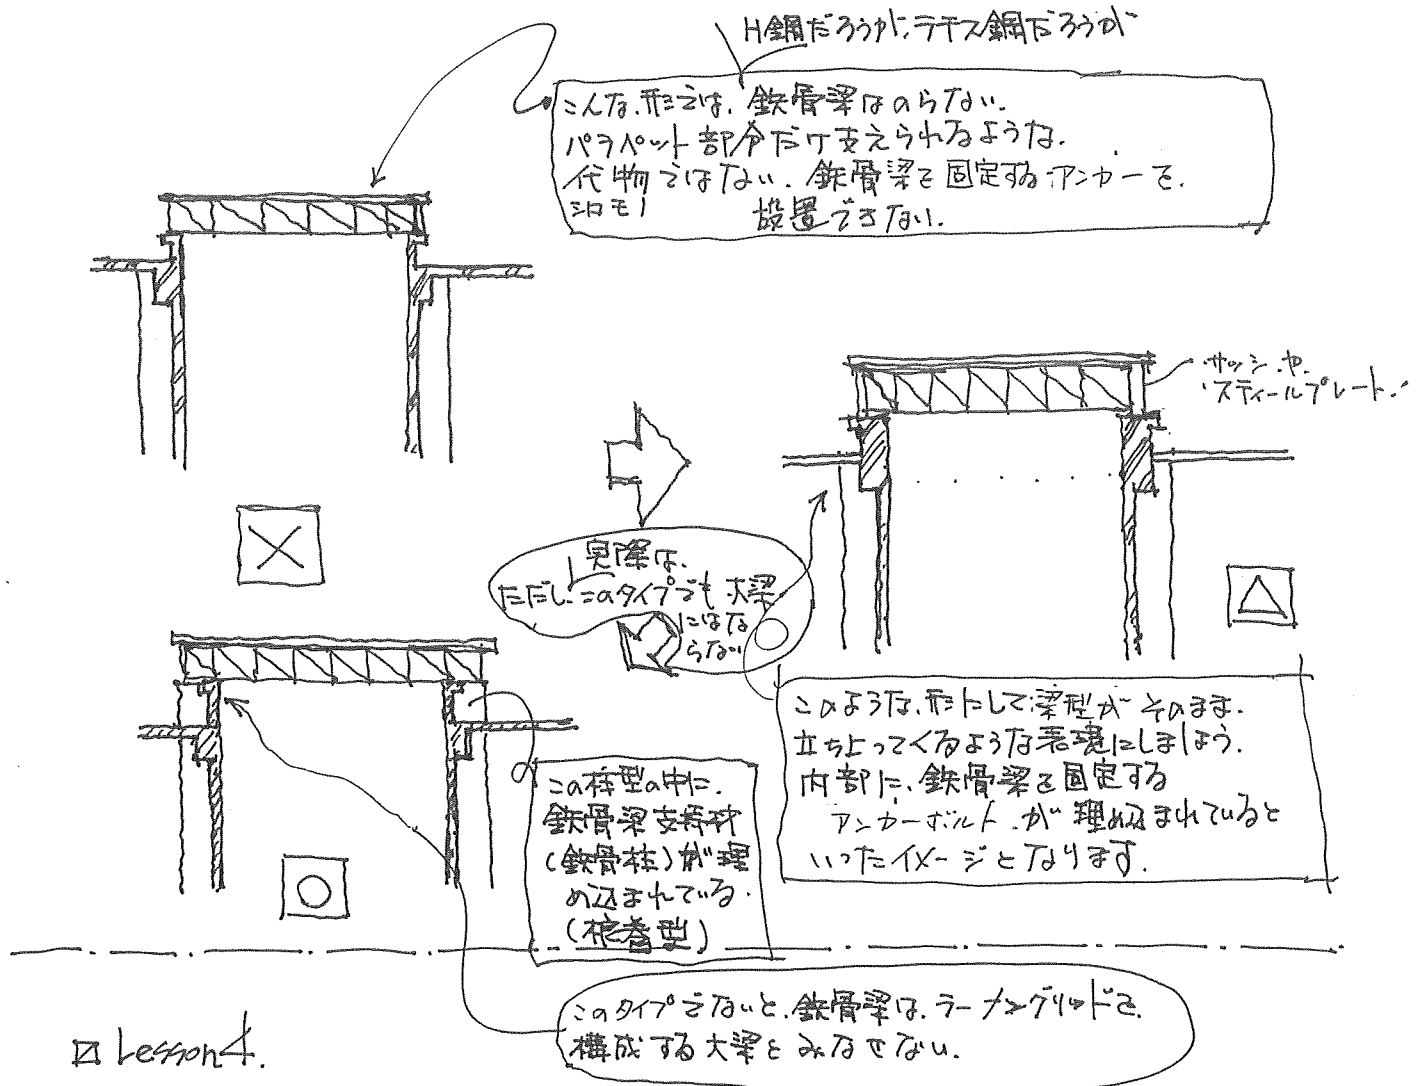 H鋼だろうが、ラチス鋼だろうが
こんな形では、鉄骨梁はのらない。
パラペット部分だけ支えられるような、
代物ではない。鉄骨梁を固定するアンカーを、
シロモノ
設置できない。
サッシや、
スティールプレート。
実際は、
ただし、このタイプでも大梁
にはな
らない
このような形にして梁型がそのまま、
立ち上ってくるような表現にしましょう。
内部に、鉄骨梁を固定する
アンカーボルトが埋め込まれていると
いったイメージとなります。
この柱型の中に、
鉄骨梁支持材
(鉄骨柱)が埋
め込まれている。
(根巻型)
このタイプでないと、鉄骨梁は、ラーメングリッドを、
構成する大梁とみなせない。
Lesson4.